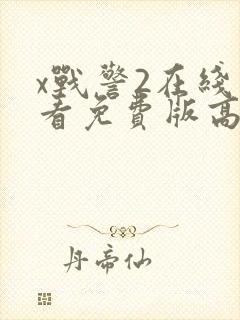 x戰警2在綫
看免費版高
丹帝仙